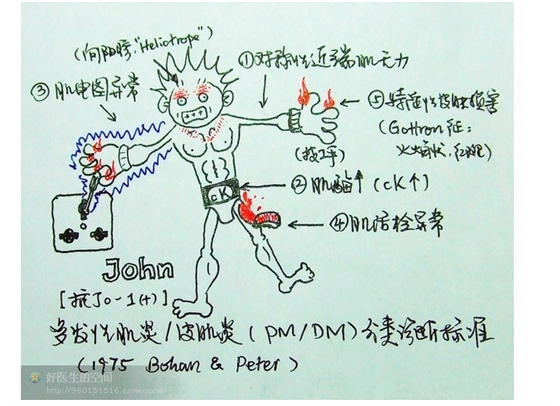 (向阳疹,"Heliotrope")
①对称性近端肌无力
③肌电图异常
⑤特征性皮肤损害
(Gottron征:
火焰状,红斑)
(技工手)
②肌酶↑(CK↑)
CK
④肌活检异常
John
[抗Jo-1(+)]
多发性肌炎/皮肌炎(PM/DM)分类诊断标准
(1975 Bohan & Peter)
好医生的空间